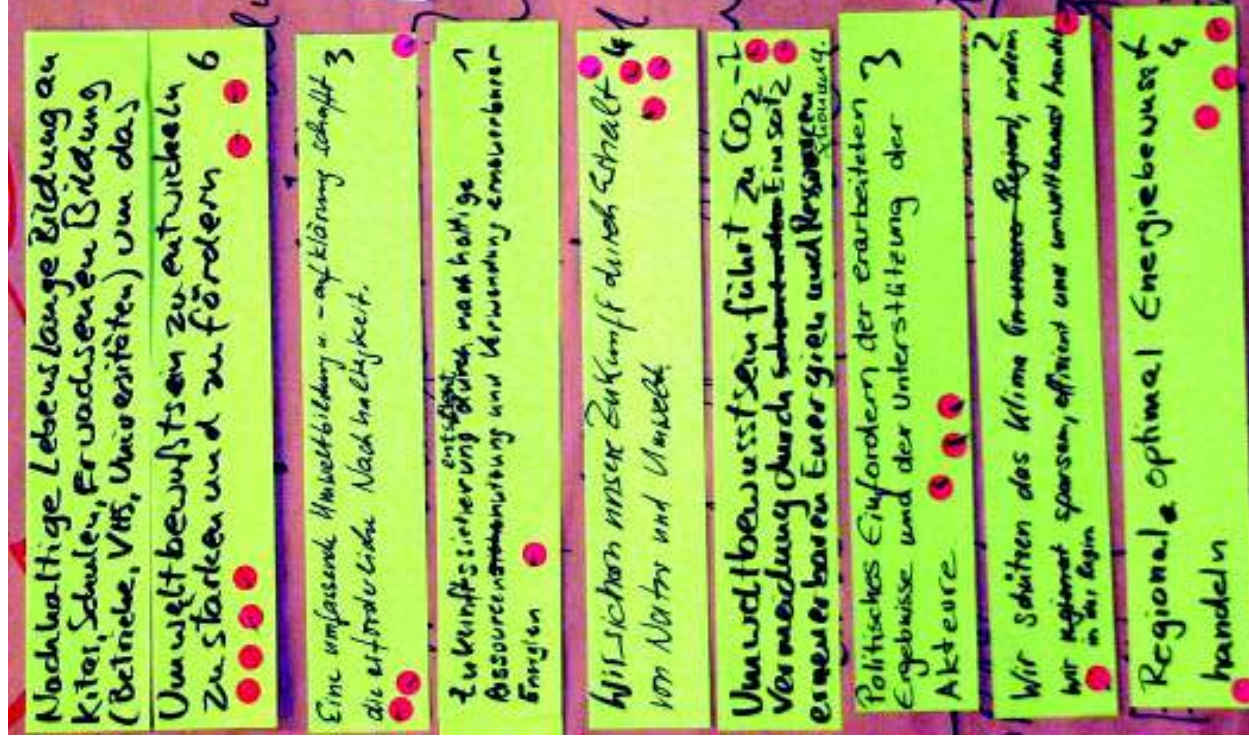 Nachhaltige Lebenslange Bildung an
Kitas, Schulen, Erwachsenen Bildung
(Betriebe, VHS, Universitäten) um das
Umweltbewußtsein zu entwickeln
zu stärken und zu fördern 6
Eine umfassende Umweltbildung u. -aufklärung schafft 3
die erforderliche Nachhaltigkeit.
Zukunftssicherung durch nachhaltige 1
Ressourcennutzung und Verwendung erneuerbarer
Energien
Wir sichern unsere Zukunft durch Erhalt 4
von Natur und Umwelt.
Umweltbewusstsein führt zu CO2- 2
Vermeidung durch Einsatz
erneuerbaren Energien und
Politisches Einfordern der erarbeiteten 3
Ergebnisse und der Unterstützung der
Akteure
Wir schützen das Klima indem 2
wir regional sparsam, effizient und umweltbewusst handeln
in der Region
Regional optimal Energiebewusst 4
handeln